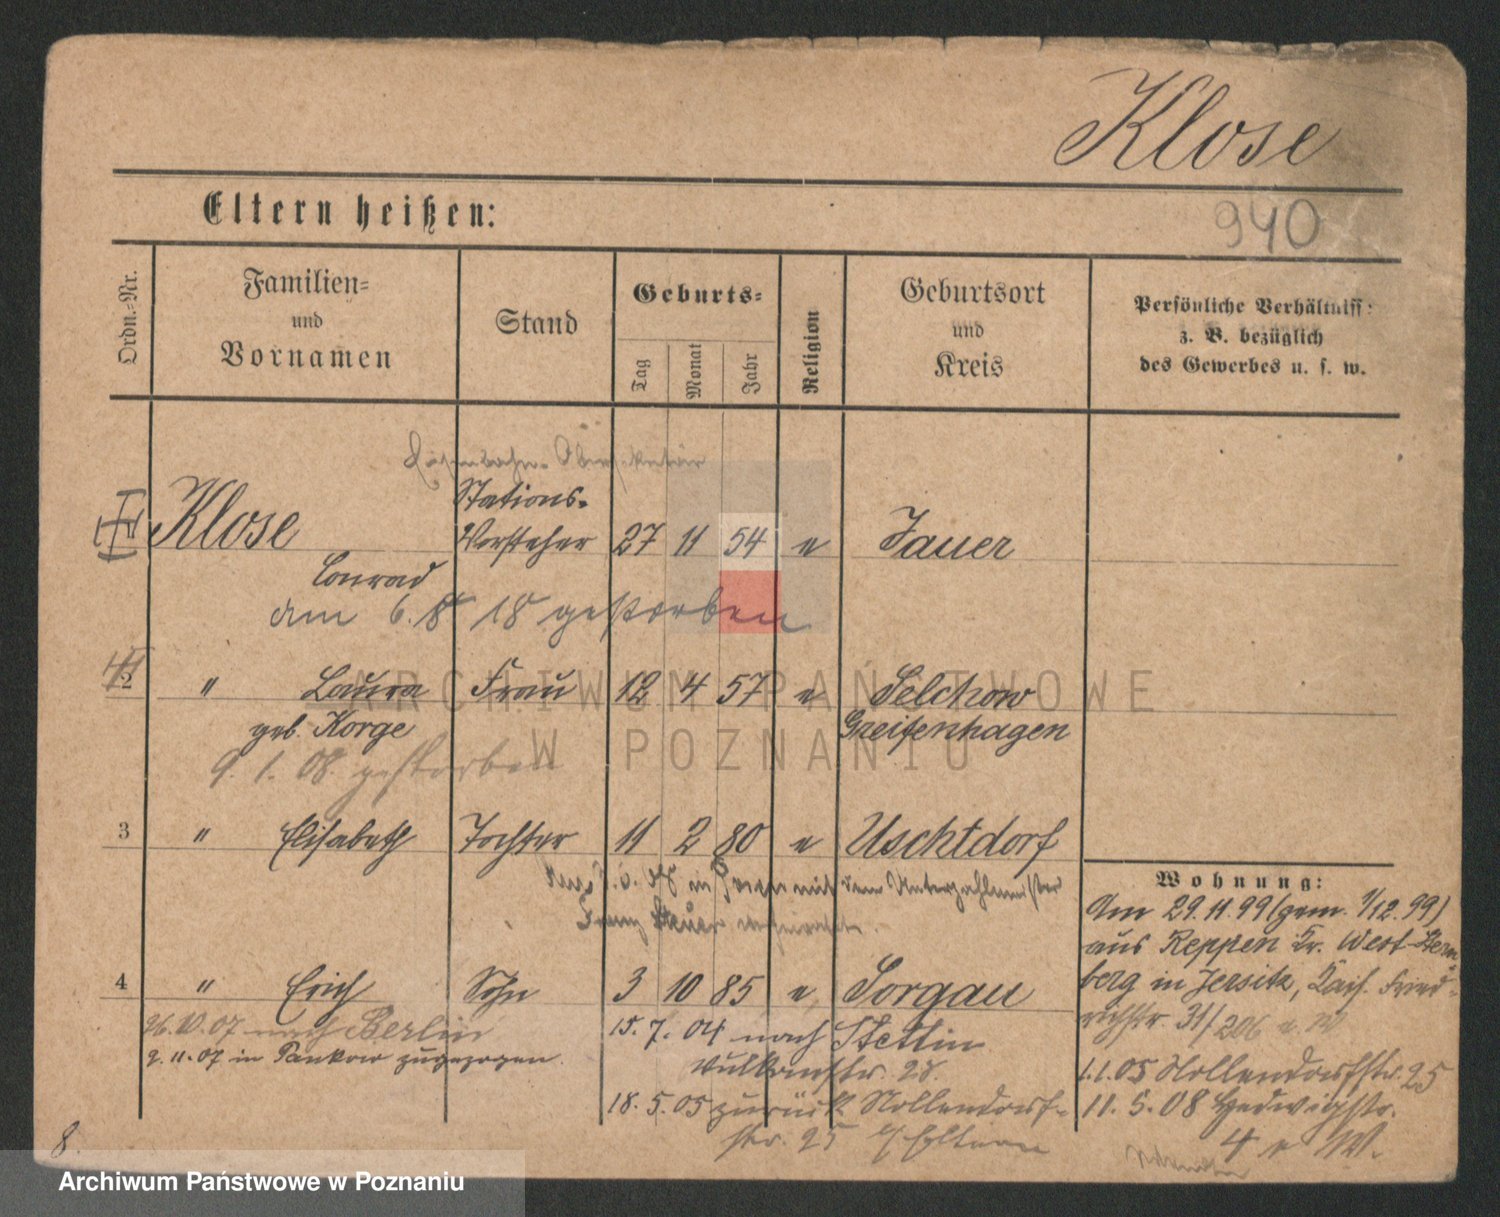 Klose
940
Eltern heißen:
Ordn.-Nr.
Familien-
und
Vornamen
Stand
Geburts-
Tag
Monat
Jahr
Religion
Geburtsort
und
Kreis
Persönliche Verhältniss:
z. B. bezüglich
des Gewerbes u. s. w.
Eisenbahn-
Stations-
Klose Vorsteher 27 11 54 e Jauer
Conrad
am 6. 8 18 gestorben
2 " Laura Frau 12 4 57 e Selchow
geb. Korge Greifenhagen
9. 1. 08. gestorben
3 " Elisabeth Tochter 11 2 80 e Uschtdorf
mit dem
Wohnung:
Am 29.11.99 (gem. 1/12.99)
aus Reppen Kr. West-Stern
berg in Jersitz, Kais. Fried-
richstr 31/206 e. W
1.1.05 Nollendorfstr. 25
11. 5. 08 Hedwigstr.
4 e W.
4 " Erich Sohn 3 10 85 e Sorgau
26.10.07 nach Berlin
9.11.07 in Pankow zugezogen.
15. 7. 04 nach Stettin
Vulkanstr. 28.
18. 5. 05 zurück Nollendorf-
str. 25 Eltern
8.
ARCHIWUM PAŃSTWOWE
W POZNANIU
Archiwum Państwowe w Poznaniu